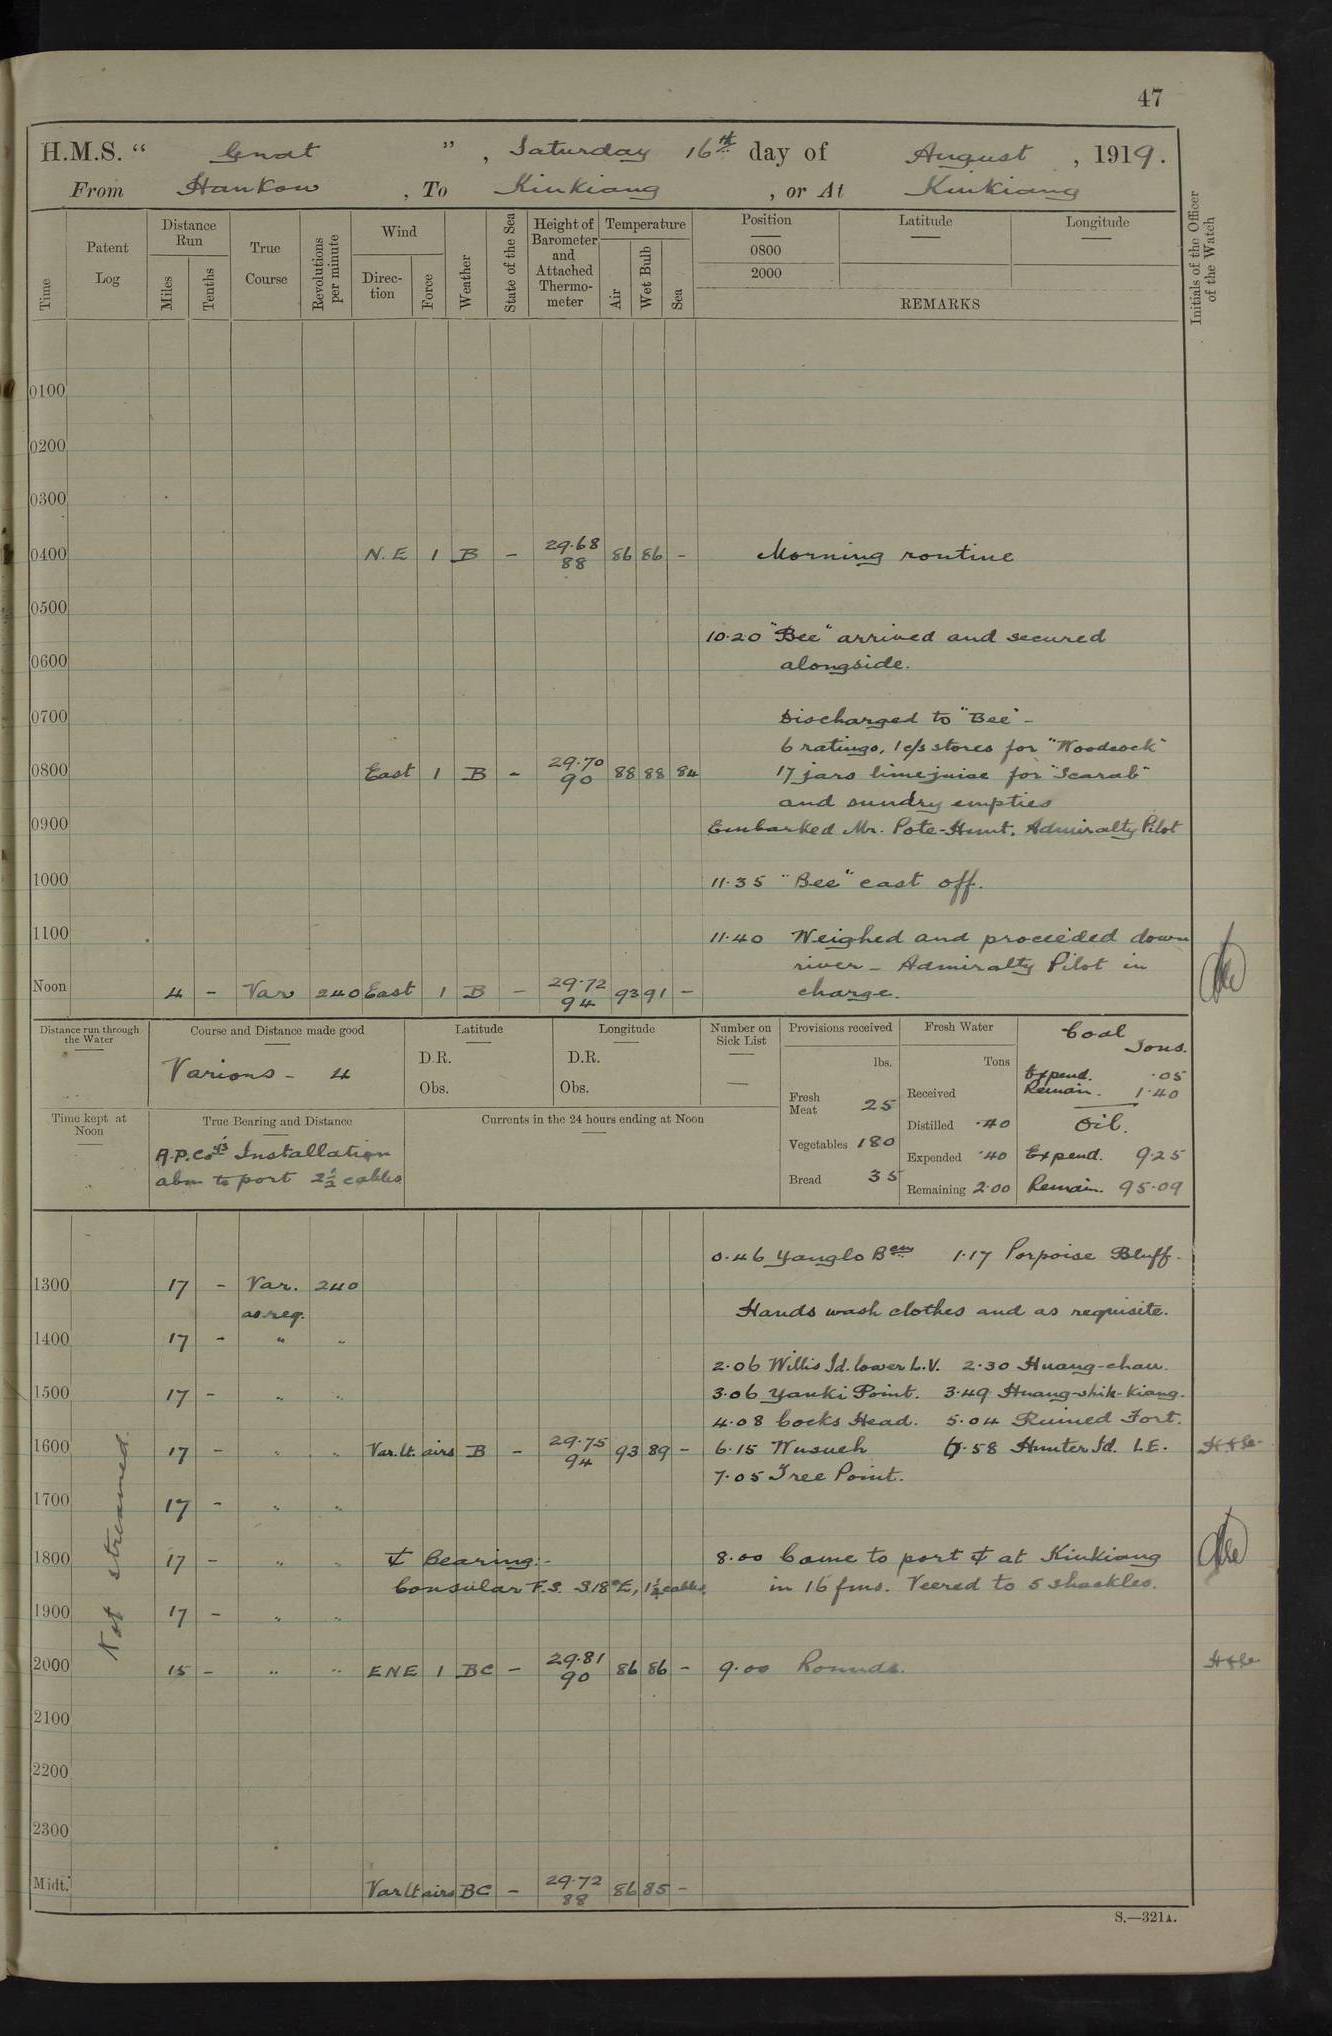 47
H.M.S. "Gnat", Saturday 16th day of August, 1919.
From Hankow, To Kiukiang, or At Kiukiang
Time
Patent Log
Distance Run
Miles
Tenths
True Course
Revolutions per minute
Wind
Direction
Force
Weather
State of the Sea
Height of Barometer and Attached Thermometer
Temperature
Air
Wet Bulb
Sea
Position
0800
2000
Latitude
Longitude
REMARKS
Initials of the Officer of the Watch
0100
0200
0300
0400 N.E 1 B - 29.68 88 86 86 - Morning routine
0500
10.20 "Bee" arrived and secured
0600 alongside.
0700 Discharged to "Bee" -
6 ratings, 1 c/s stores for "Woodcock"
0800 East 1 B - 29.70 90 88 88 84 17 jars limejuice for "Scarab"
and sundry empties
0900 Embarked Mr. Pote-Hunt. Admiralty Pilot
1000 11.35 "Bee" cast off.
1100 11.40 Weighed and proceeded down
river - Admiralty Pilot in
Noon 4 - Var 240 East 1 B - 29.72 94 93 91 - charge.
Distance run through the Water
Course and Distance made good
Various - 4
Latitude
D.R.
Obs.
Longitude
D.R.
Obs.
Number on Sick List
—
Provisions received
lbs.
Fresh Meat 25
Vegetables 180
Bread 35
Fresh Water
Tons
Received
Distilled .40
Expended .40
Remaining 2.00
Coal
Tons.
Expend. .05
Remain. 1.40
Oil.
Expend. 9.25
Remain. 95.09
Time kept at Noon
True Bearing and Distance
A.P.Coy's Installation
abm to port 2½ cables
Currents in the 24 hours ending at Noon
0.46 Yanglo Bcn 1.17 Porpoise Bluff.
1300 17 - Var. 240
as req. Hands wash clothes and as requisite.
1400 17 - " "
2.06 Willis Id. lower L.V. 2.30 Huang-chau.
1500 17 - " " 3.06 Yanki Point. 3.49 Huang-shih-kiang.
4.08 Cocks Head. 5.04 Ruined Fort.
1600 17 - " " Var. lt. airs B - 29.75 94 93 89 - 6.15 Wusueh 6.58 Hunter Id. L.E.
7.05 Tree Point.
1700 17 - " "
Not streamed
1800 17 - " " ⚓ Bearing:- 8.00 Came to port ⚓ at Kiukiang
Consular F.S. S18°E, 1½ cables. in 16 fms. Veered to 5 shackles.
1900 17 - " "
2000 15 - " " ENE 1 BC - 29.81 90 86 86 - 9.00 Rounds.
2100
2200
2300
Midt. Var lt airs BC - 29.72 88 86 85 -
S.—321A.